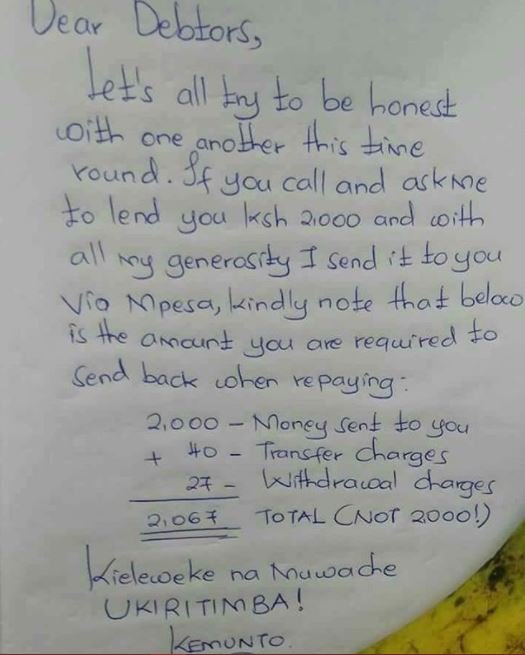 Dear Debtors,
Let's all try to be honest
with one another this time
round. If you call and ask me
to lend you ksh 2,000 and with
all my generosity I send it to you
Via Mpesa, kindly note that below
is the amount you are required to
send back when repaying:
2,000 – Money sent to you
+ 40 – Transfer charges
27 – Withdrawal charges
2,067 TOTAL (NOT 2000!)
Kieleweke na Muwache
UKIRITIMBA!
KEMUNTO.